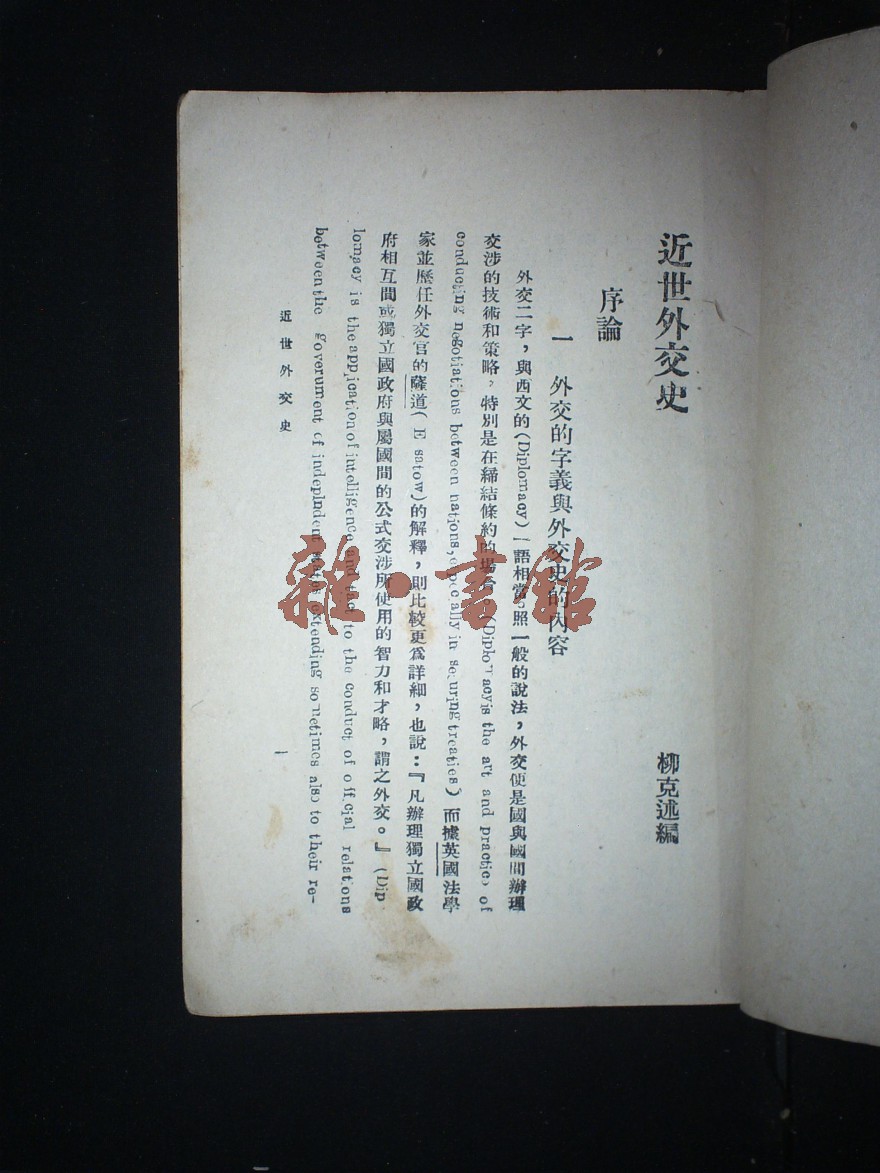 近世外交史
柳克述編
序論
一 外交的字義與外交史的內容
外交二字，與西文的(Diplomacy)一語相當。照一般的說法，外交便是國與國間辦理
交涉的技術和策略，特別是在締結條約的場合(Diplomacy is the art and practice of
conducting negotiations between nations, especially in securing treaties)而據英國法學
家並歷任外交官的薩道(E satow)的解釋，則比較更爲詳細，也說：『凡辦理獨立國政
府相互間或獨立國政府與屬國間的公式交涉所使用的智力和才略，謂之外交。』(Dip
lomacy is the application of intelligence and tact to the conduct of official relations
between the goverument of indeplndent states extending sometimes also to their re-
近世外交史
一
雜·書館